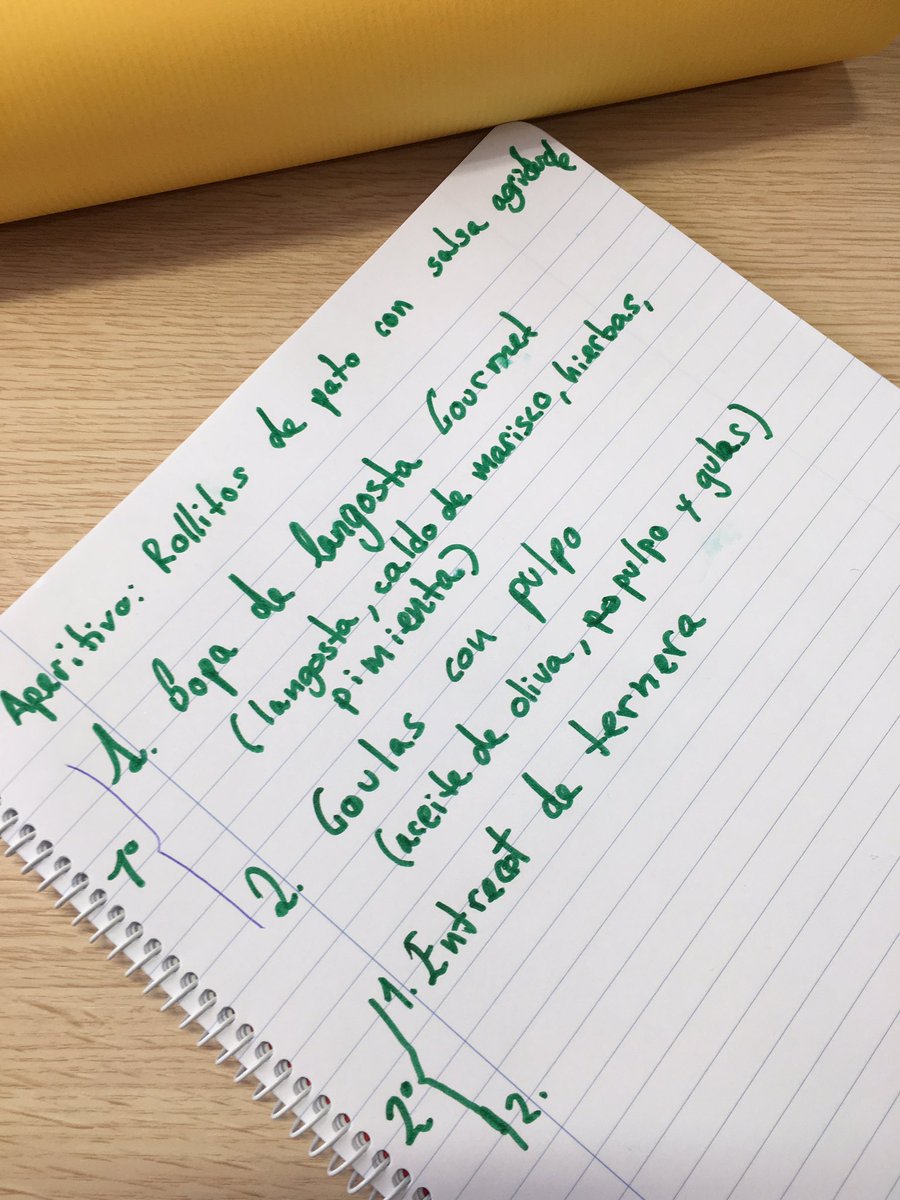 Aperitivo: Rollitos de pato con salsa agridulce
1º
1. Sopa de langosta Gourmet
(langosta, caldo de marisco, hierbas,
pimienta)
2. Goulas con pulpo
(aceite de oliva, po pulpo y gulas)
2º
1. Entrecot de ternera
2.